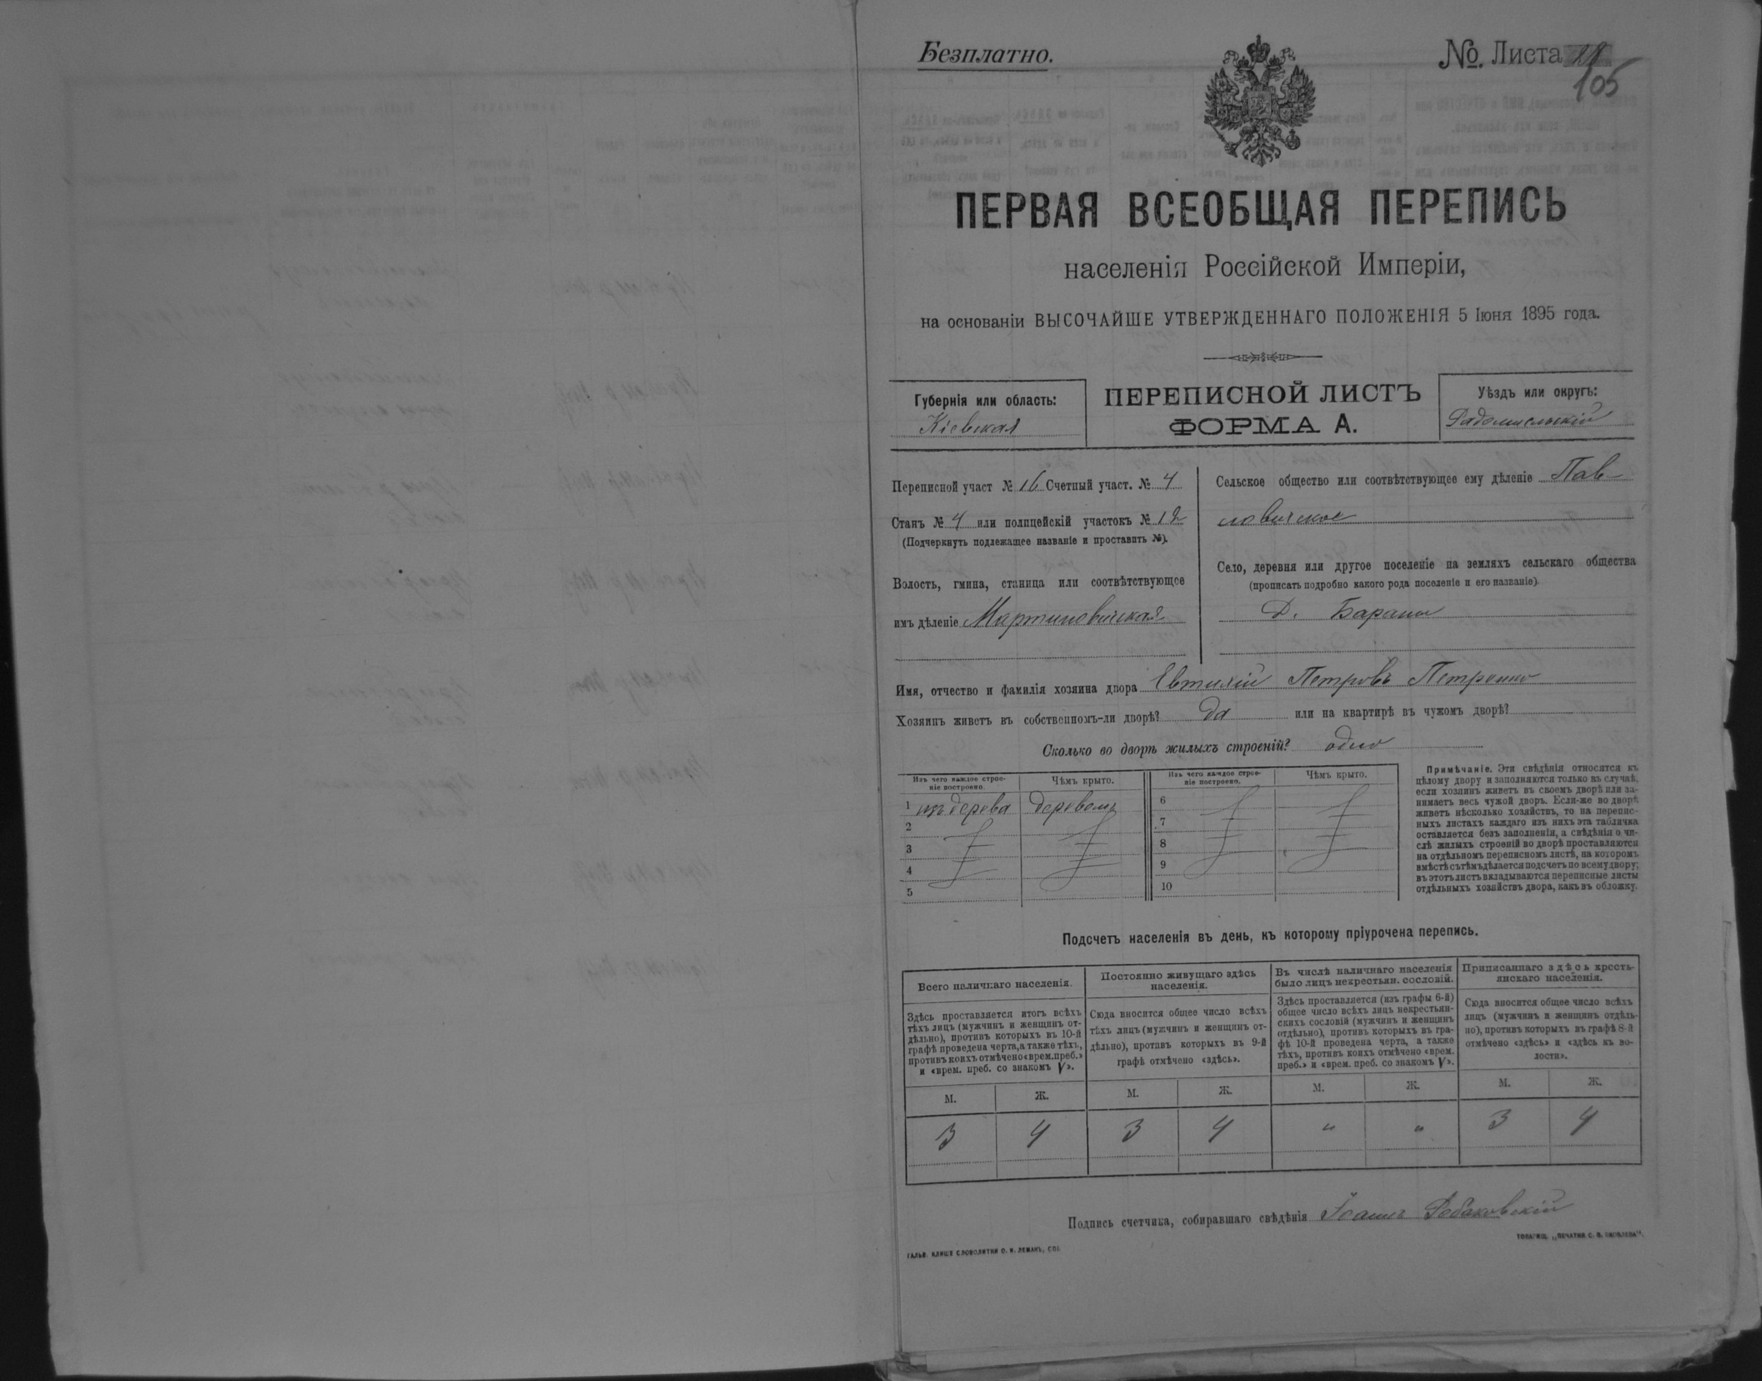 Безплатно.
№. Листа
105
ПЕРВАЯ ВСЕОБЩАЯ ПЕРЕПИСЬ
населенія Россійской Имперіи,
на основаніи ВЫСОЧАЙШЕ УТВЕРЖДЕННАГО ПОЛОЖЕНІЯ 5 Іюня 1895 года.
Губернія или область:
Кіевская
ПЕРЕПИСНОЙ ЛИСТЪ
ФОРМА А.
Уѣздъ или округъ:
Радомысльскій
Переписной участ № 16 Счетный участ. № 4
Станъ № 4 или полицейскій участокъ № 12
(Подчеркнуть подлежащее названіе и проставить №).
Волость, гмина, станица или соотвѣтствующее
имъ дѣленіе Мартиновичская
Сельское общество или соотвѣтствующее ему дѣленіе Пав
ловичское
Село, деревня или другое поселеніе на земляхъ сельскаго общества
(прописать подробно какого рода поселеніе и его названіе)
Д. Бараши
Имя, отчество и фамилія хозяина двора Евтихій Петровъ Петренко
Хозяинъ живетъ въ собственномъ-ли дворѣ? да или на квартирѣ въ чужомъ дворѣ?
Сколько во дворѣ жилыхъ строеній? одно
Изъ чего каждое строе-
ніе построено.
Чѣмъ крыто.
Изъ чего каждое строе-
ніе построено.
Чѣмъ крыто.
1 изъ дерева деревомъ
2
3
4
5
6
7
8
9
10
Примѣчаніе. Эти свѣдѣнія относятся къ
цѣлому двору и заполняются только въ случаѣ,
если хозяинъ живетъ въ своемъ дворѣ или за-
нимаетъ весь чужой дворъ. Если-же во дворѣ
живетъ нѣсколько хозяйствъ, то на перепис-
ныхъ листахъ каждаго изъ нихъ эта табличка
оставляется безъ заполненія, а свѣдѣнія о чи-
слѣ жилыхъ строеній во дворѣ проставляются
на отдѣльномъ переписномъ листѣ, на которомъ
вмѣстѣ съ тѣмъ дѣлается подсчетъ по всему двору;
въ этотъ листъ вкладываются переписные листы
отдѣльныхъ хозяйствъ двора, какъ въ обложку.
Подсчетъ населенія въ день, къ которому пріурочена перепись.
Всего наличнаго населенія.
Здѣсь проставляется итогъ всѣхъ
тѣхъ лицъ (мужчинъ и женщинъ от-
дѣльно), противъ которыхъ въ 10-й
графѣ проведена черта, а также тѣхъ,
противъ коихъ отмѣчено «врем. преб.»
и «врем. преб. со знакомъ V».
Постоянно живущаго здѣсь
населенія.
Сюда вносится общее число всѣхъ
тѣхъ лицъ (мужчинъ и женщинъ от-
дѣльно), противъ которыхъ въ 9-й
графѣ отмѣчено «здѣсь».
Въ числѣ наличнаго населенія
было лицъ некрестьян. сословій.
Здѣсь проставляется (изъ графы 6-й)
общее число всѣхъ лицъ некрестьян-
скихъ сословій (мужчинъ и женщинъ
отдѣльно), противъ которыхъ въ гра-
фѣ 10-й проведена черта, а также
тѣхъ, противъ коихъ отмѣчено «врем.
преб.» и «врем. преб. со знакомъ V».
Приписаннаго здѣсь кресть-
янскаго населенія.
Сюда вносится общее число всѣхъ
лицъ (мужчинъ и женщинъ отдѣль-
но), противъ которыхъ въ графѣ 8-й
отмѣчено «здѣсь» и «здѣсь въ во-
лости».
М. Ж. М. Ж. М. Ж. М. Ж.
3 4 3 4 „ „ 3 4
Подпись счетчика, собиравшаго свѣдѣнія